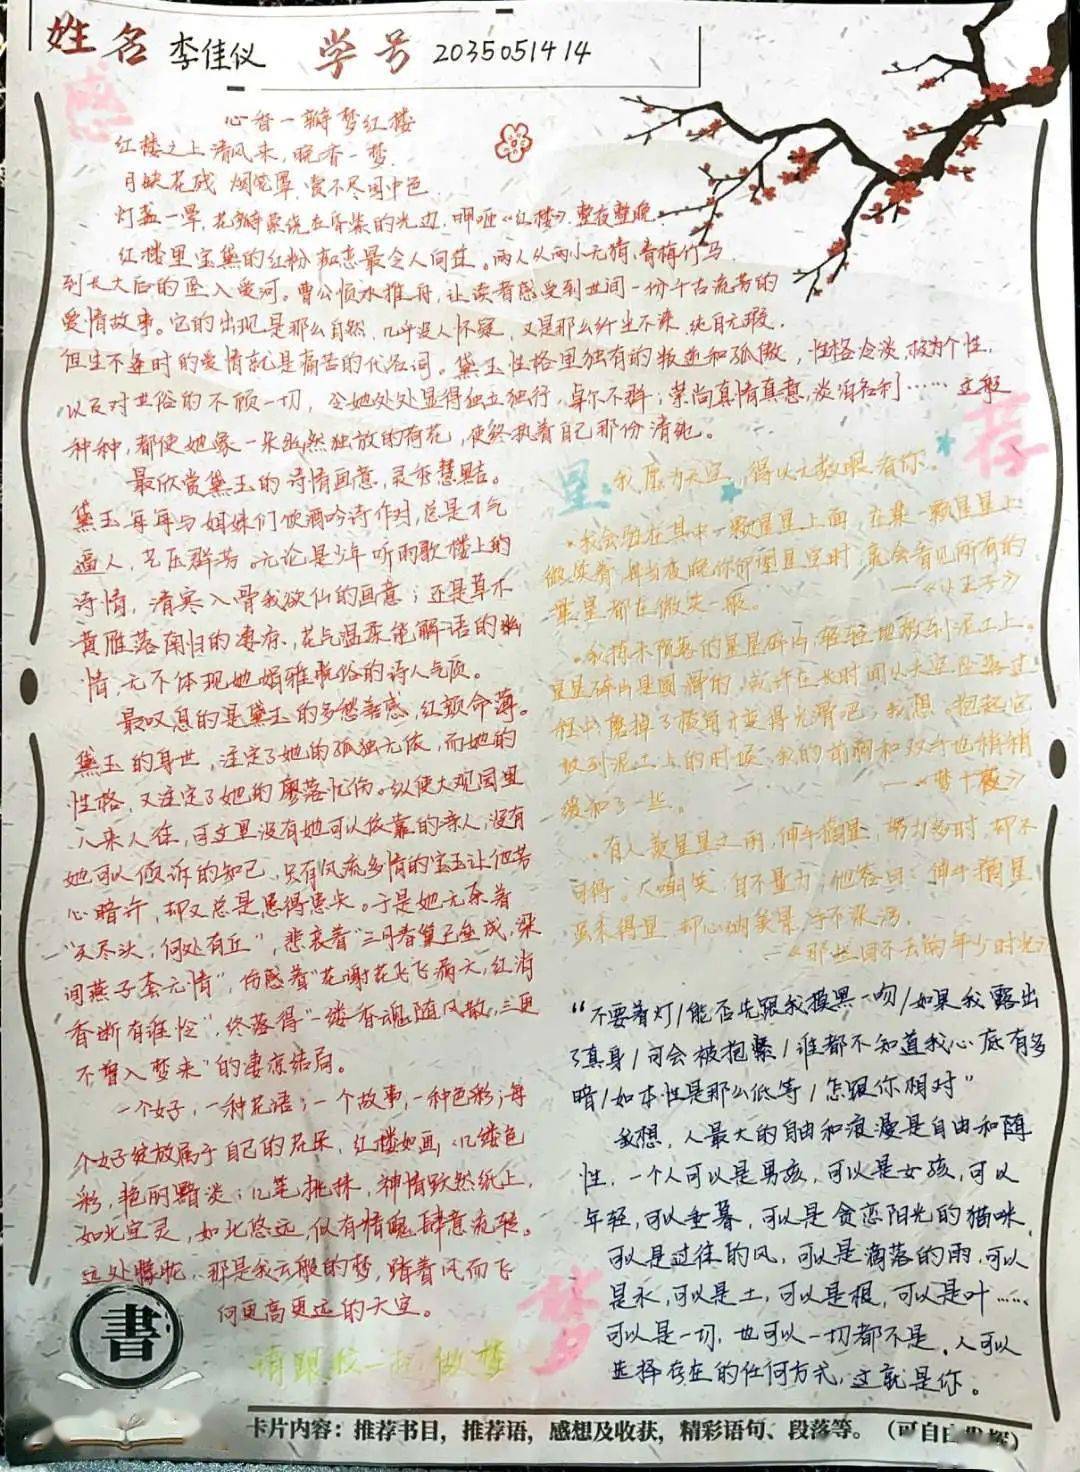 姓名 李佳仪 学号 2035051414
感
心香一瓣梦红楼
红楼之上清风来，晚香一梦，
月缺花残 烟笼罩，赏不尽闺中色
灯盏一晕，花瓣萦绕在昏柴的光边，呷哑《红楼》，整夜整晚。
红楼里宝黛的红粉痴恋最令人向往。两人从两小无猜，青梅竹马
到长大后的坠入爱河。曹公顺水推舟，让读者感受到世间一份千古流芳的
爱情故事。它的出现是那么自然，几乎没人怀疑，又是那么纤尘不染，纯白无瑕，
但生不逢时的爱情就是痛苦的代名词。黛玉性格里独有的叛逆和孤傲，性格冷淡，极为个性，
以及对世俗的不顾一切，令她处处显得独立独行，卓尔不群；荣尚真情真意，淡泊名利……这般
种种，都使她象一朵幽然独放的荷花，使终执着自己那份清纯。
荐
最欣赏黛玉的诗情画意，灵秀慧黠。
黛玉年年与姐妹们饮酒吟诗作对，总是才气
逼人，艺压群芳。无论是少年听雨歌楼上的
诗情，清寒入骨我欲仙的画意；还是草木
黄雁落南归的凄寂、花气温柔能解语的幽
情，无不体现她娟雅脱俗的诗人气质。
最叹息的是黛玉的多愁善感，红颜命薄。
黛玉的身世，注定了她的孤独无依，而她的
性格，又注定了她的廖落忧伤。纵使大观园里
人来人往，可这里没有她可以依靠的亲人，没有
她可以倾诉的知己，只有风流多情的宝玉让他芳
心暗许，却又总是患得患失。于是她无奈着
“天尽头，何处有丘”，悲哀着“三月香巢已垒成，梁
间燕子太无情”，伤感着“花谢花飞飞满天，红消
香断有谁怜”，终落得“一缕香魂随风散，三更
不曾入梦来”的凄凉结局。
一个女子，一种花语；一个故事，一种色彩；每
个女子绽放属于自己的花朵，红楼如画，几缕色
彩，艳丽黯淡；几笔挑抹，神情跃然纸上，
如此空灵，如此悠远，似有情愫肆意流转。
远处朦胧，那是我云般的梦，踏着风而飞
向更高更远的天空。
请跟我一起做梦
星：我愿为天空，得以无数眼看你。
·我会住在其中一颗星星上面，在某一颗星星上
微笑着，每当夜晚你仰望星空时，就会看见所有的
繁星都在微笑一般。
——《小王子》
·我将未陨落的星星碎片轻轻地放到泥土上。
星星碎片是圆滑的，或许在长时间从天空坠落过
程中，磨掉了棱角才变得光滑吧，我想。抱起它
放到泥土上的时候，我的前胸和双手也稍稍
缓和了一些。
——《梦十夜》
·有人羡星星之雨，伸手摘星，努力多时，却不
可得。人嘲笑：自不量力；他答曰：伸手摘星
虽未得星，却心纳美景，手不染污。
——《那些回不去的年少时光》
“不要着灯/能否先跟我摸黑一吻/如果我露出
了真身/可会被抱紧/谁都不知道我心底有多
暗/如本性是那么低等/怎跟你相对”
我想，人最大的自由和浪漫是自由和随
性，一个人可以是男孩，可以是女孩，可以
年轻，可以垂暮，可以是贪恋阳光的猫咪，
可以是过往的风，可以是滴落的雨，可以
是水，可以是土，可以是根，可以是叶……
可以是一切，也可以一切都不是。人可以
选择存在的任何方式，这就是你。
梦
書
卡片内容：推荐书目，推荐语，感想及收获，精彩语句、段落等。（可自由发挥）